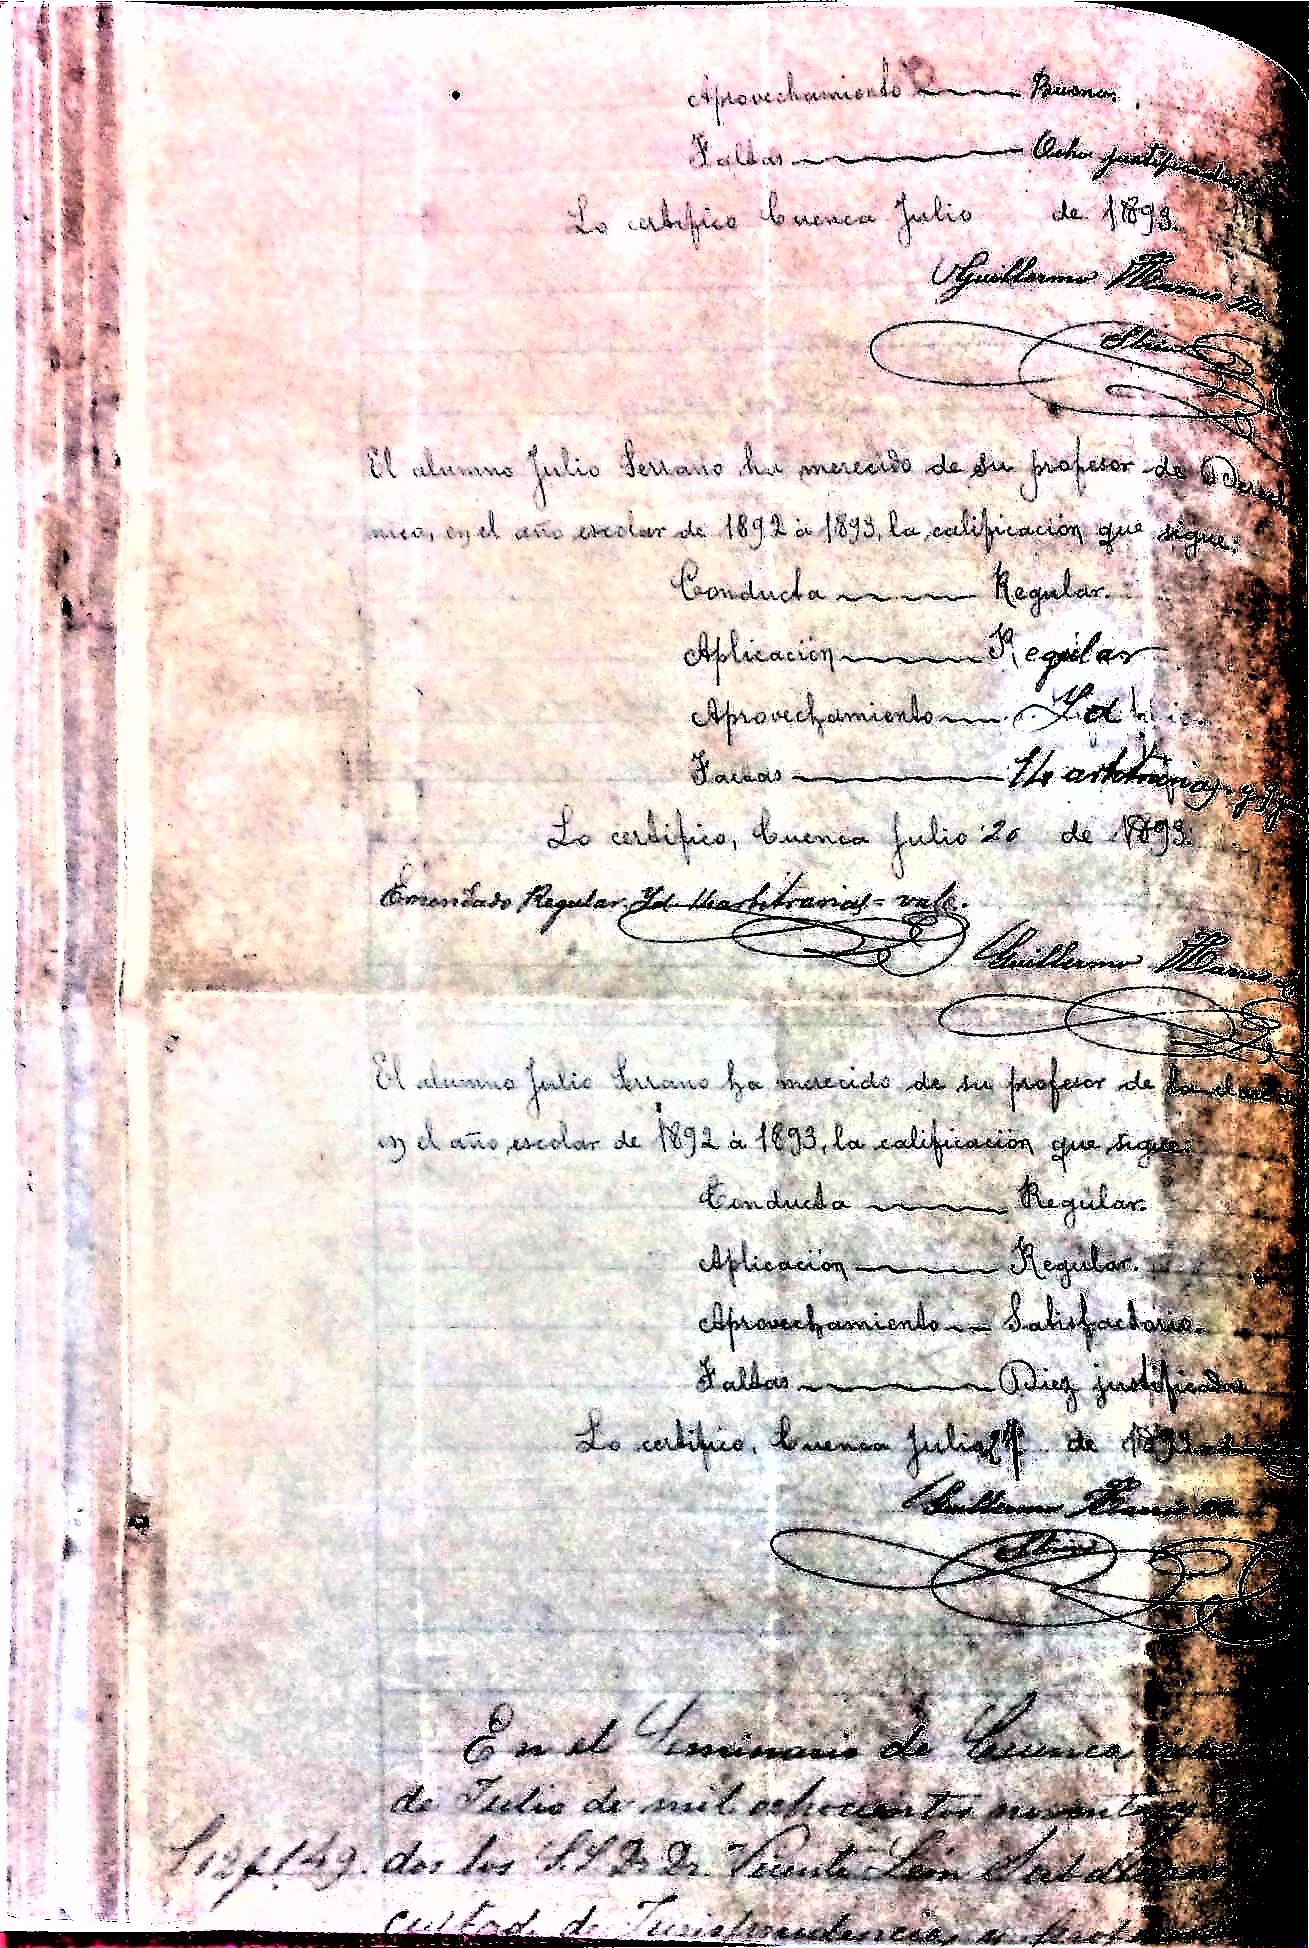 Aprovechamiento Buenos.
Faltas Ocho justificadas
Lo certifico Cuenca Julio de 1893.
Guillermo
El alumno Julio Serrano ha merecido de su profesor de
nico, en el año escolar de 1892 á 1893, la calificación que sigue:
Conducta Regular.
Aplicación Regular
Aprovechamiento Id
Faltas 14 arbitrarias
Lo certifico, Cuenca Julio 20 de 1893.
Emendado Regular. Id 14 arbitrarias = vale.
Guillermo
El alumno Julio Serrano ha merecido de su profesor de la
en el año escolar de 1892 á 1893, la calificación que sigue:
Conducta Regular.
Aplicación Regular.
Aprovechamiento Satisfactorio.
Faltas Diez justificadas
Lo certifico, Cuenca Julio de 1893
Guillermo
En el Seminario de Cuenca,
de Julio de mil ochocientos noventa y
dos los S.S. Drs. Dr. Vicente León
cultad de Jurisprudencia y